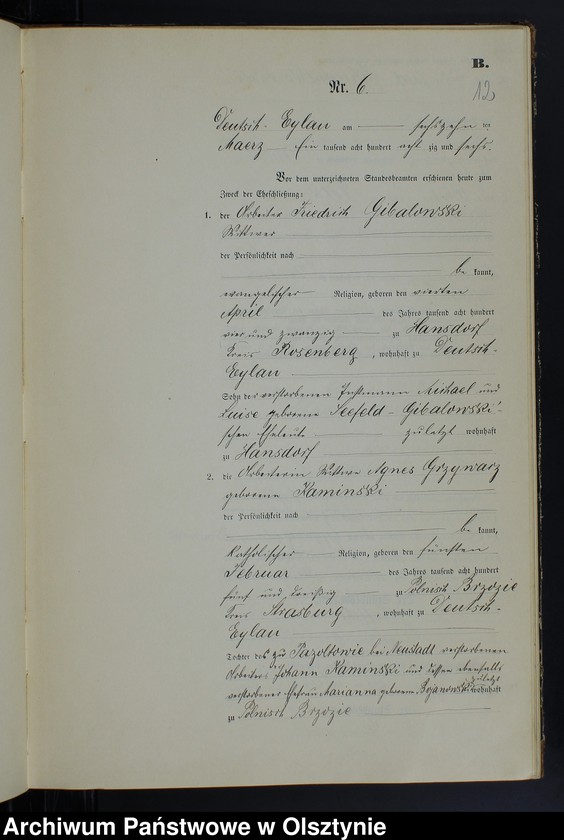 B.
Nr. 6.
12
Deutsch-Eylau am sechszehnten
Maerz Ein tausend acht hundert acht zig und sechs.
Vor dem unterzeichneten Standesbeamten erschienen heute zum
Zweck der Eheschließung:
1. der Arbeiter Friedrich Gibalowski
Wittwer
der Persönlichkeit nach
be kannt,
evangelischer Religion, geboren den vierten
April des Jahres tausend acht hundert
vier und zwanzig zu Hansdorf
Kreis Rosenberg, wohnhaft zu Deutsch-
Eylau
Sohn des verstorbenen Instmann Michael und
Luise geborene Seefeld-Gibalowski'
schen Eheleute zuletzt wohnhaft
zu Hansdorf
2. die Arbeiterin Wittwe Agnes Grzywarz
geborene Kaminski
der Persönlichkeit nach
be kannt,
katholischer Religion, geboren den fünften
Februar des Jahres tausend acht hundert
fünf und dreißig zu Polnisch Brzozie
Kreis Strasburg, wohnhaft zu Deutsch-
Eylau
Tochter des zu bei Neustadt verstorbenen
Arbeiters Johann Kaminski und dessen ebenfalls
verstorbener Ehefrau Marianna geborene Bojanowski zuletzt wohnhaft
zu Polnisch Brzozie
Archiwum Państwowe w Olsztynie